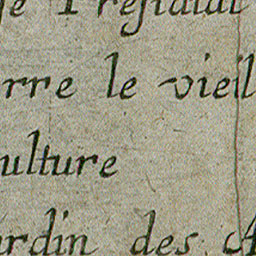 le Presidial
rre le vieil
ulture
ardin des A